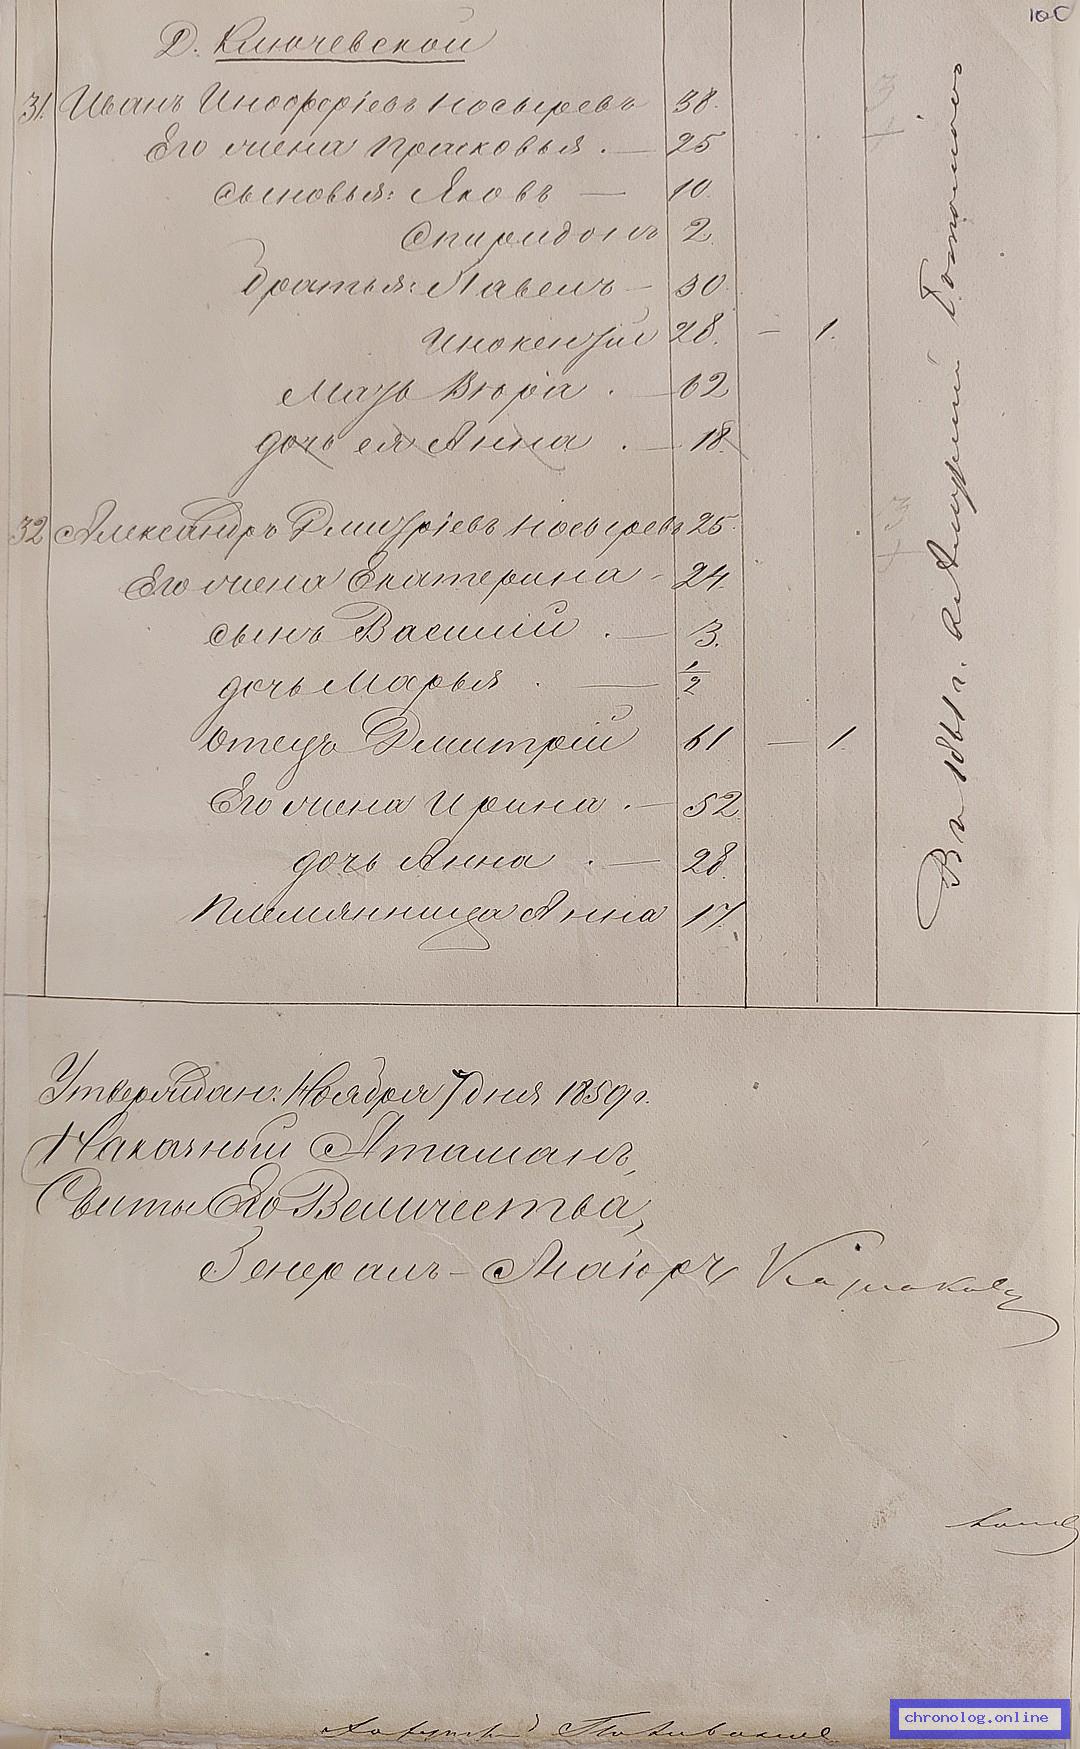 100
Д. Ключевской
31. Иванъ Никофоріевъ Носыревъ 38.
Его жена Прасковья . — 25
сыновья: Яковъ — 10.
Спиридонъ 2
братья: Павелъ — 30.
Инокентій 28. — 1.
Мать Вѣра . — 62
дочь ея Анна . — 18.
32 Александръ Дмитріевъ Носыревъ 25.
Его жена Екатерина - 24.
сынъ Василій . — 3.
дочь Марья . — 1/2
Отецъ Дмитрій 61 — 1.
Его жена Ирина . — 52
дочь Анна . — 28.
Племянница Анна 17.
Въ 1861 г. на Амурѣ
Утверждаю: Ноября 7 дня 1859 г.
Наказный Атаманъ,
Свиты Его Величества,
Генералъ-Маіоръ
Хорунжій
chronolog.online